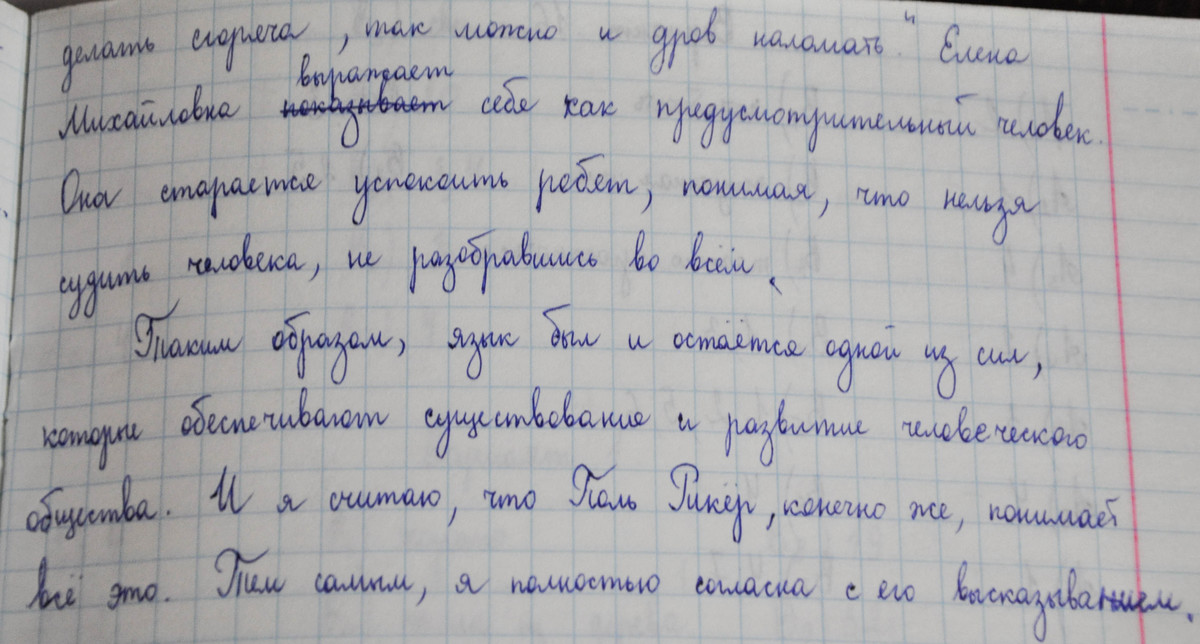 делать сгоряча, так можно и дров наломать" Елена
выражает
Михайловна показывает себя как предусмотрительный человек.
Она старается успокоить ребят, понимая, что нельзя
судить человека, не разобравшись во всём.
Таким образом, язык был и остаётся одной из сил,
которые обеспечивают существование и развитие человеческого
общества. И я считаю, что Поль Рикёр, конечно же, понимает
всё это. Тем самым, я полностью согласна с его высказыванием.